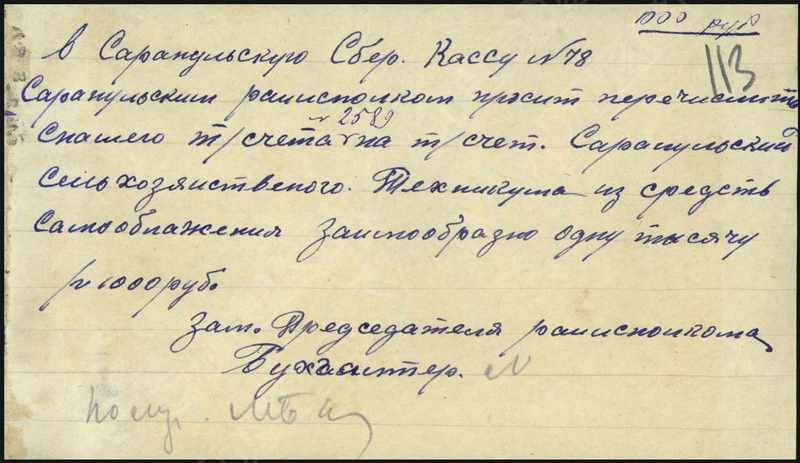 1000 руб
113
в Сарапульскую Сбер. Кассу №78
Сарапульским раиисполком просит перечислить
снашего т/счета № 2589 на т/счет. Сарапульский
Сельхозяиственого. Техникума из средств
Самооблажения заимообразно одну тысячу
/и 1000 руб.
Зам. Председателя раиисполкома
Бухгалтер.